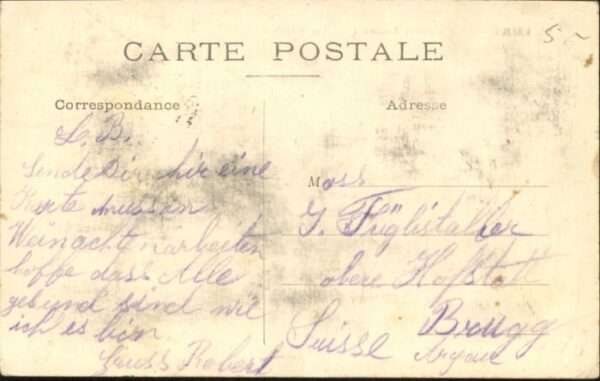 CARTE POSTALE
5 -
Correspondance
Adresse
L. B.
Sende Dir hir eine
Karte mussen
Weinachten arbeiten
hoffe dass Alle
gesund sind wie
ich es bin
Gruss Robert
M
J. Füglistaller
obere Hofstatt
Brugg
Suisse Argau